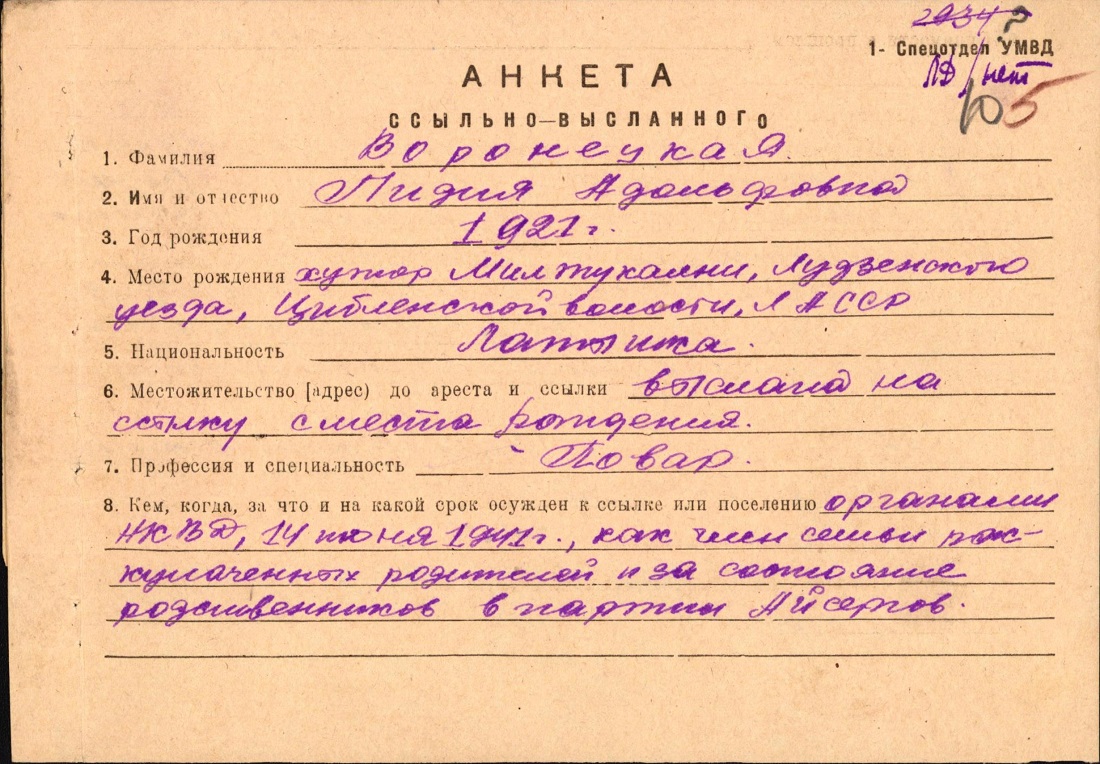 2934 ?
1- Спецотдел УМВД
ЛД / нет
105
АНКЕТА
ССЫЛЬНО—ВЫСЛАННОГО
1. Фамилия Воронецкая.
2. Имя и отчество Лидия Адольфовна
3. Год рождения 1921 г.
4. Место рождения хутор Милтукални, Лудзенского
уезда, Цибленской волости, ЛАССР
5. Национальность Латышка.
6. Местожительство [адрес) до ареста и ссылки выслана на
ссылку с места рождения.
7. Профессия и специальность Повар.
8. Кем, когда, за что и на какой срок осужден к ссылке или поселению органами
НКВД, 14 июня 1941 г., как член семьи рас-
кулаченных родителей и за состояние
родственников в партии Айсергов.